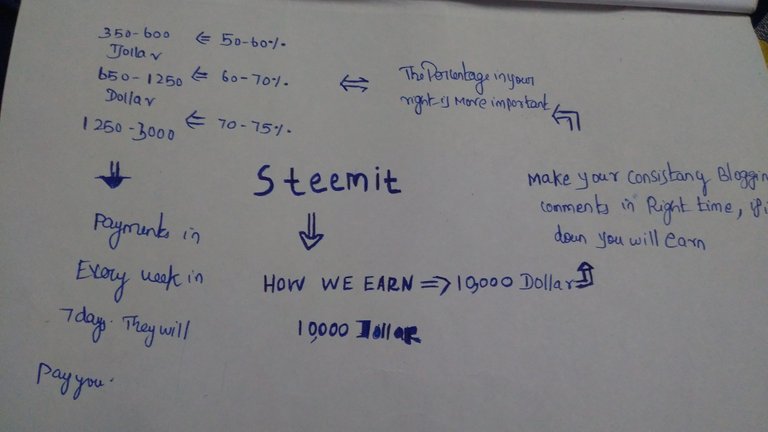 350-600 ⇐ 50-60%
Dollar
650-1250 ⇐ 60-70%
Dollar
1250-3000 ⇐ 70-75%
⇔
The Percentage in your
right is More important
Steemit
HOW WE EARN ⇒ 10,000 Dollar
10,000 Dollar
Make your Consistany Bloggin
comments in Right time,
down you will earn
Payments in
Every week in
7 days. They will
Pay you.